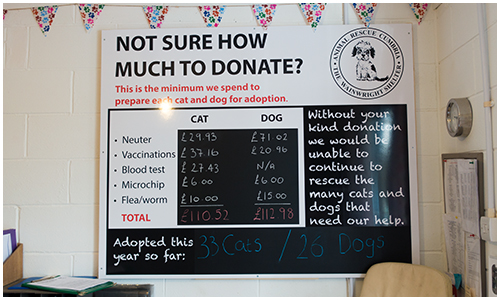 NOT SURE HOW
MUCH TO DONATE?
This is the minimum we spend to
prepare each cat and dog for adoption.
ANIMAL RESCUE CUMBRIA
THE WAINWRIGHT SHELTER
CAT DOG
• Neuter £29.93 £71.02
• Vaccinations £37.16 £20.96
• Blood test £27.43 N/A
• Microchip £6.00 £6.00
• Flea/worm £10.00 £15.00
TOTAL £110.52 £112.98
Without your
kind donation
we would be
unable to
continue to
rescue the
many cats and
dogs that
need our help.
Adopted this
year so far: 33 Cats / 26 Dogs